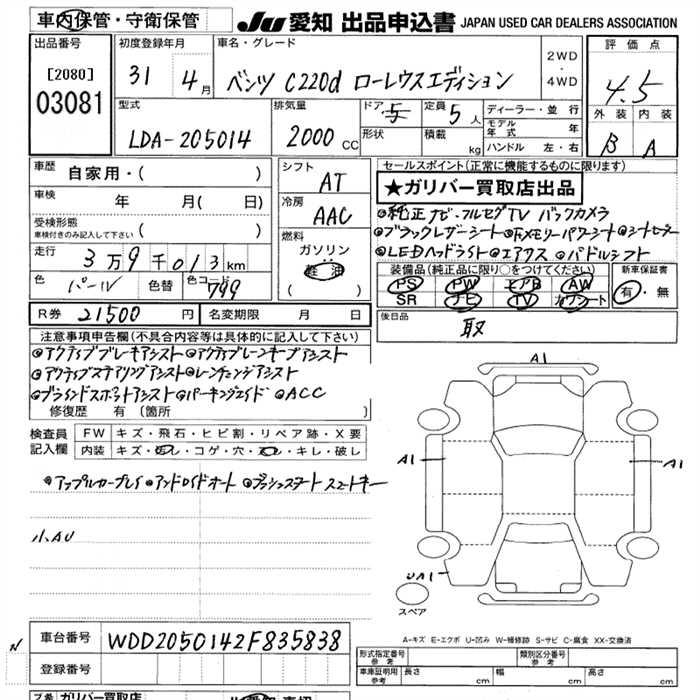 車内保管・守衛保管 JU 愛知 出品申込書 JAPAN USED CAR DEALERS ASSOCIATION
出品番号 初度登録年月 車名・グレード 2WD・4WD 評価点
[2080] 31 4月 ベンツ C220d ローレウスエディション 4.5
03081
型式 排気量 ドア 5 定員 5人 ディーラー・並行 外装 内装
LDA-205014 2000CC 形状 積載 kg モデル年式 年 B A
ハンドル 左・右
車歴 自家用・( ) シフト AT セールスポイント(正常に機能するものに限ります)
車検 年 月( 日) 冷房 AAC ★ガリバー買取店出品
受検形態 車検付きのみ記入して下さい ( ) 燃料 ガソリン 軽油 ( )
◎純正ナビ・フルセグTV バックカメラ
◎ブラックレザーシート ◎Fメモリーパワーシート ◎シートヒーター
◎LEDヘッドライト ◎エアサス ◎パドルシフト
走行 3万9千013km
色 パール 色替 色コード 799
装備品(純正品に限り○をつけてください) 新車保証書
PS PW エアB AW 有・無
SR ナビ TV カワシート
R券 21500円 名変期限 月 日 後日品 取
注意事項申告欄(不具合内容等は具体的に記入して下さい)
◎アクティブブレーキアシスト ◎アクティブレーンキープアシスト
◎アクティブステアリングアシスト ◎レーンチェンジアシスト
◎ブラインドスポットアシスト ◎パーキングエイド ◎ACC
修復歴 有 (箇所
検査員記入欄 FW キズ・飛石・ヒビ割・リペア跡・X要
内装 キズ・汚レ・コゲ・穴・スレ・キレ・破レ
◎アップルカープレイ ◎アンドロイドオート ◎プッシュスタート スマートキー
小AU
A1
A1
A1
UA1
スペア
A-キズ E-エクボ U-凹み W-補修跡 S-サビ C-腐食 XX-交換済
車台番号 WDD2050142F835838
登録番号
形式指定番号 参考 類別区分番号 参考
車庫証明用 参考 長さ cm 幅 cm 高さ cm
ガリバー買取店